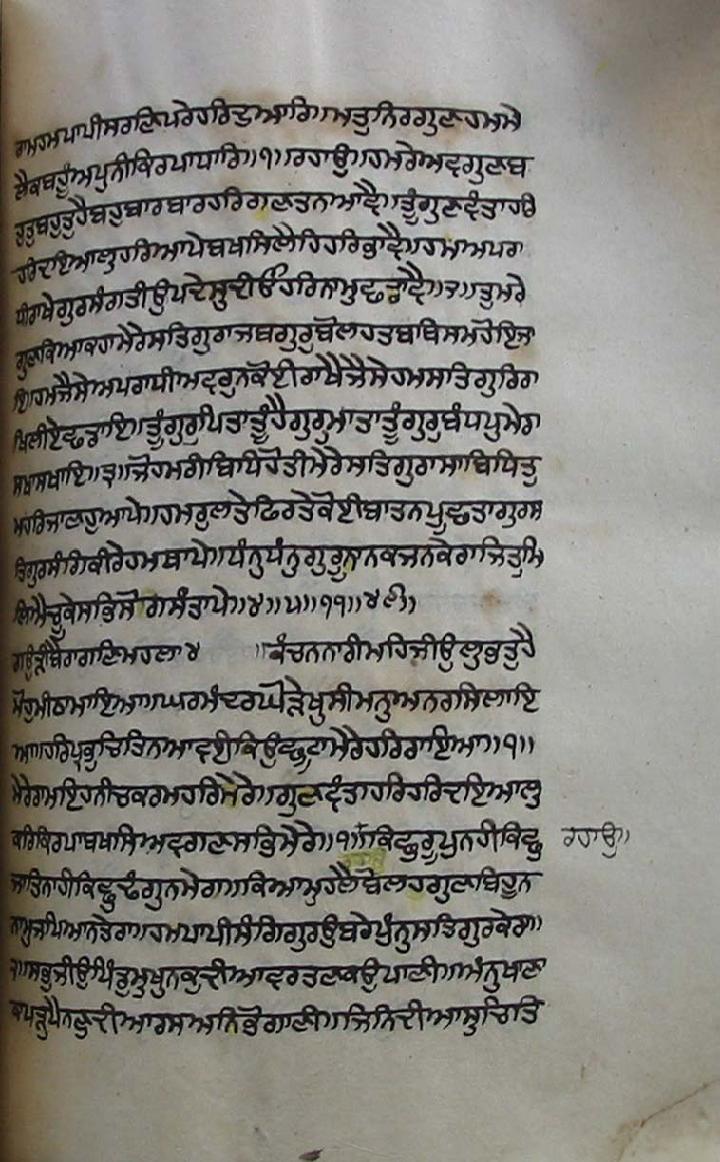 ਰਾਮਹਮਪਾਪੀਸਰਣਿਪਰੇਹਰਿਦੁਆਰਿ॥ਮਤੁਨਿਰਗੁਣਹਮਮੇ
ਲੈਕਬਹੂੰਅਪੁਨੀਕਿਰਪਾਧਾਰਿ॥੧॥ਰਹਾਉ॥ਹਮਰੇਅਵਗੁਣਬ
ਹੁਤੁਬਹੁਤੁਹੈਬਹੁਬਾਰਬਾਰਹਰਿਗਣਤਨਆਵੈ॥ਤੂੰਗੁਣਵੰਤਾਹਰਿ
ਹਰਿਦਇਆਲੁਹਰਿਆਪੇਬਖਸਿਲੈਹਿਹਰਿਭਾਵੈ॥ਹਮਅਪਰਾ
ਧੀਰਾਖੇਗੁਰਸੰਗਤੀਉਪਦੇਸੁਦੀਓਹਰਿਨਾਮੁਛਡਾਵੈ॥੨॥ਤੁਮਰੇ
ਗੁਣਕਿਆਕਹਾਮੇਰੇਸਤਿਗੁਰਾਜਬਗੁਰੁਬੋਲਹਤਬਬਿਸਮੁਹੋਇਜਾ
ਇ॥ਹਮਜੈਸੇਅਪਰਾਧੀਅਵਰੁਨਕੋਈਰਾਖੈਜੈਸੇਹਮਸਤਿਗੁਰਿਰਾ
ਖਿਲੀਏਛਡਾਇ॥ਤੂੰਗੁਰੁਪਿਤਾਤੂੰਹੈਗੁਰੁਮਾਤਾਤੂੰਗੁਰੁਬੰਧਪੁਮੇਰਾ
ਸਖਾਸਖਾਇ॥੩॥ਜੋਹਮਰੀਬਿਧਿਹੋਤੀਮੇਰੇਸਤਿਗੁਰਾਸਾਬਿਧਿਤੁ
ਮਹਰਿਜਾਣਹੁਆਪੇ॥ਹਮਰੁਲਤੇਫਿਰਤੇਕੋਈਬਾਤਨਪੂਛਤਾਗੁਰਸ
ਤਿਗੁਰਸੰਗਿਕੀਰੇਹਮਥਾਪੇ॥ਧੰਨੁਧੰਨੁਗੁਰੂਨਾਨਕਜਨਕੇਰਾਜਿਤੁਮਿ
ਲਿਐਚੂਕੇਸਭਿਸੋਗਸੰਤਾਪੇ॥੪॥੫॥੧੧॥੪੯॥
ਗਉੜੀਬੈਰਾਗਣਿਮਹਲਾ੪ ॥ਕੰਚਨਨਾਰੀਮਹਿਜੀਉਲੁਭਤੁਹੈ
ਮੋਹੁਮੀਠਾਮਾਇਆ॥ਘਰਮੰਦਰਘੋੜੇਖੁਸੀਮਨੁਅਨਰਸਿਲਾਇ
ਆ॥ਹਰਿਪ੍ਰਭੁਚਿਤਿਨਆਵਈਕਿਉਛੂਟਾਮੇਰੇਹਰਿਰਾਇਆ॥੧॥
ਮੇਰੇਰਾਮਇਹਨੀਚਕਰਮਹਰਿਮੇਰੇ॥ਗੁਣਵੰਤਾਹਰਿਹਰਿਦਇਆਲੁ
ਕਰਿਕਿਰਪਾਬਖਸਿਅਵਗਣਸਭਿਮੇਰੇ॥੧॥ਕਿਛੁਰੂਪੁਨਹੀਕਿਛੁ ਰਹਾਉ॥
ਜਾਤਿਨਾਹੀਕਿਛੁਢੰਗੁਨਮੇਰਾ॥ਕਿਆਮੁਹੁਲੈਬੋਲਹਗੁਣਬਿਹੂਨ
ਨਾਮੁਜਪਿਆਨਤੇਰਾ॥ਹਮਪਾਪੀਸੰਗਿਗੁਰਉਬਰੇਪੁੰਨੁਸਤਿਗੁਰਕੇਰਾ॥
੨॥ਸਭੁਜੀਉਪਿੰਡੁਮੁਖੁਨਕੁਦੀਆਵਰਤਣਕਉਪਾਣੀ॥ਅੰਨੁਖਾਣਾ
ਕਪੜੁਪੈਨਣੁਦੀਆਰਸਅਨਿਭੋਗਾਣੀ॥ਜਿਨਿਦੀਆਸੁਚਿਤਿ